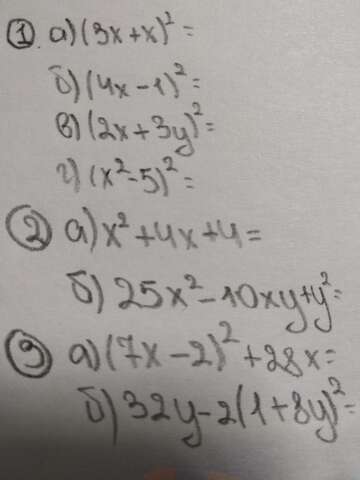 ① а) (3x+x)²=
б) (4x-1)²=
в) (2x+3y)²=
г) (x²-5)²=
② а) x²+4x+4=
б) 25x²-10xy+y²=
③ а) (7x-2)²+28x=
б) 32y-2(1+8y)²=